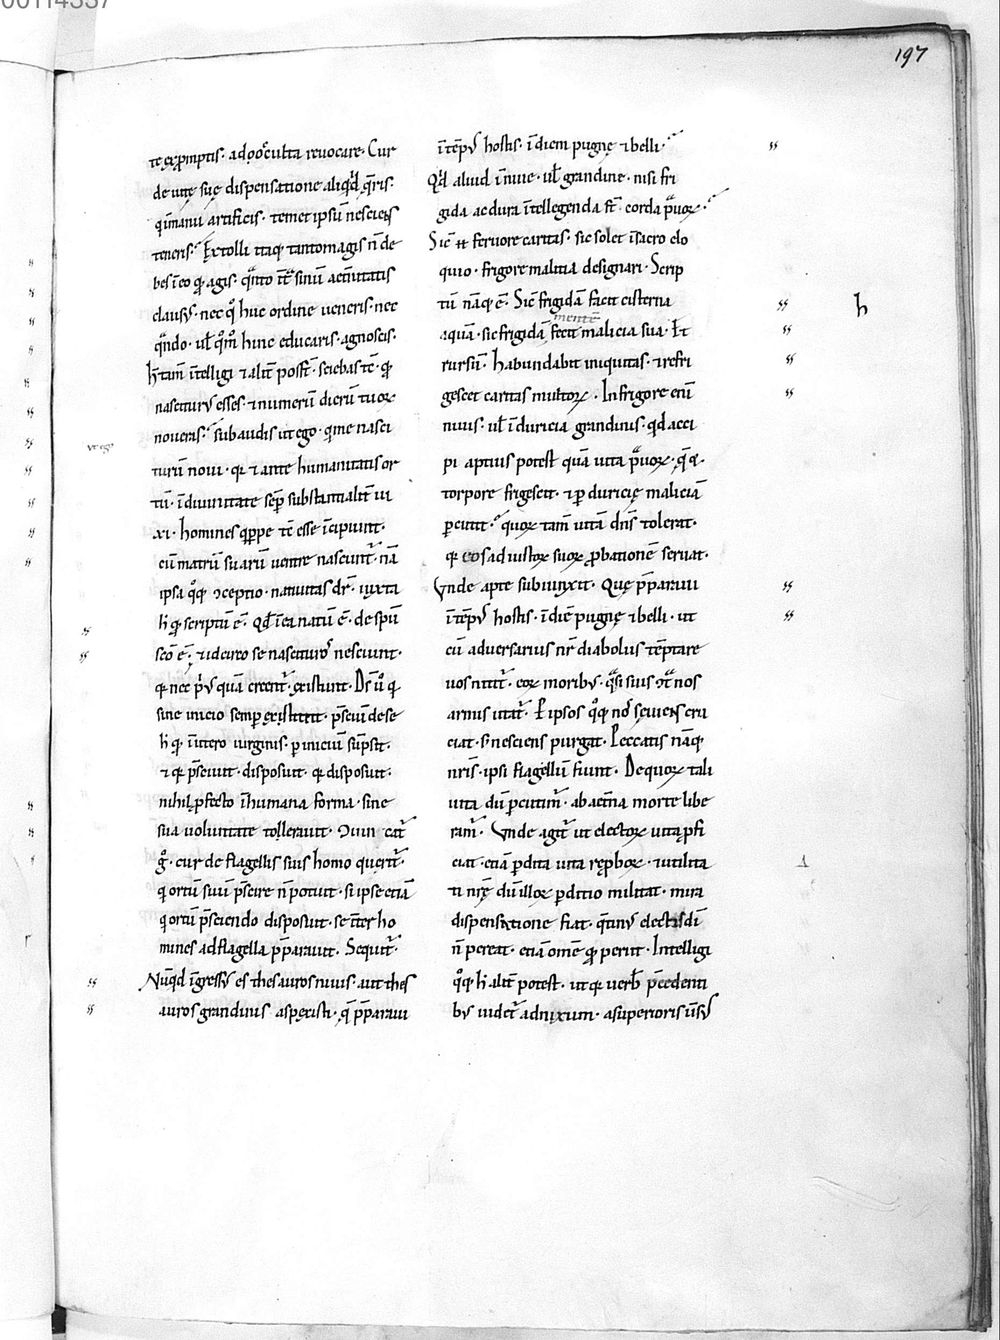 00114337
197
te exp̄mptis · ad occulta reuocare · Cur
de uitę suę dispensatione aliq̇d q̄ris ·
q̇ īmanu artificis · temetipsū nesciens
teneris · Extolli itaq; tanto magis n̄ de
bes ī eo q̇ agis ·
clausus · nec q̊ huc ordine ueneris · nec
q̄ndo · ul̄ q̊m̊ hinc educaris · agnoscis ·
īntelligi ⁊ alit̄ post̄ · sciebas t̄c · q̇
nasciturus esses · ⁊ numerū dierū tuoꝝ
noueras · subaudis ut ego · q̇ me nasci
ut ego
turū noui · q̇ ⁊ ante humanitatis or
tū · ī diuinitate sep̄ substantialit̄ ui
xi · homines q̇ppe t̄c esse īcipiunt ·
cū matrū suarū uentre nascunt̄ · nā
ipsa q̊q; ↄceptio · natiuitas dr̄ · iuxta
h̄ q̇ scriptū ē · Qd̄ ī ea natū ē · de spū
sc̄o ē · ⁊ idcirco se nascituros nesciunt ·
q̇ nec ṗus quā creent̄ · existunt · Ds̄ ů q̇
sine inicio semp existit · p̄sciuit de se
h̄ q̇ · ī utero uirginis · p inicium sūpsit ·
⁊ q̇ p̄sciuit · disposuit · q̇ disposuit ·
nihil pfecto ī humana forma · sine
sua uoluntate tollerauit · Ↄuin cat̄
g̊ · cur de flagellis suis homo querit̄ ·
q̇ ortū suū p̄scire n̄ potuit · si ipse etiā
q̇ ortū p̄sciendo disposuit · se int̄ ho
mines ad flagella p̄parauit · Sequit̄ ·
Nūq̇d īgressus es thesauros niuis · aut thes
auros grandinis aspexisti · q̄ p̄paraui
ī tēpus hostis · ī diem pugnę ⁊ belli ·
Q̇d aliud ī niue · ul̄ grandine · nisi fri
gida ac dura īntellegenda st̄ corda p̄uoꝝ ·
Sic̄ n̄ feruore caritas · sic solet ī sacro elo
quio · frigore malitia designari · Scrip
tū nāq; ē · Sic̄ frigidā facit cisterna
mentē
aquā · sic frigidā fecit malicia sua · Et
rursū · Habundabit iniquitas · ⁊ refri
h
gescet caritas multoꝝ · In frigore etiā
niuis · ul̄ ī duricia grandinis · q̇d acci
pi aptius potest quā uita p̄uoꝝ · q̄ q̇
torpore frigescit · ⁊ p duricię maliciā
pcutit · quoꝝ tam̄ uitā dn̄s tolerat ·
q̇ eos ad iustoꝝ suoꝝ pbationē seruat ·
Vnde apte subiunxit · Quę p̄paraui
ī tēpus hostis · ī diē pugnę ⁊ belli · ut
cū aduersarius nr̄ diabolus tēptare
uos nitit̄ · eoꝝ moribus · q̄si suis ↄt̄ nos
armis utat̄ · Per ipsos q̊q; nos sęuiens cru
ciat · s; nesciens purgat · Peccatis nāq;
nr̄is · ipsi flagellū fiunt · De quoꝝ tali
uita dū pcutim̄ · ab aet̄na morte libe
ram̄ · Vnde agit̄ ut electoꝝ uita pfi
ciat · etiā pdita uita repboꝝ · ⁊ utilita
ti nr̄ę dū illoꝝ pditio militat · mira
dispensatione fiat · q̄tinus electis di
n̄ pereat · etiā om̄e q̇ perit · Intelligi
q̊q; h̄ alit̄ potest · ut q̇ uerb̄ p̄cedenti
bus uidet̄ adnixum · a superioris ūsus